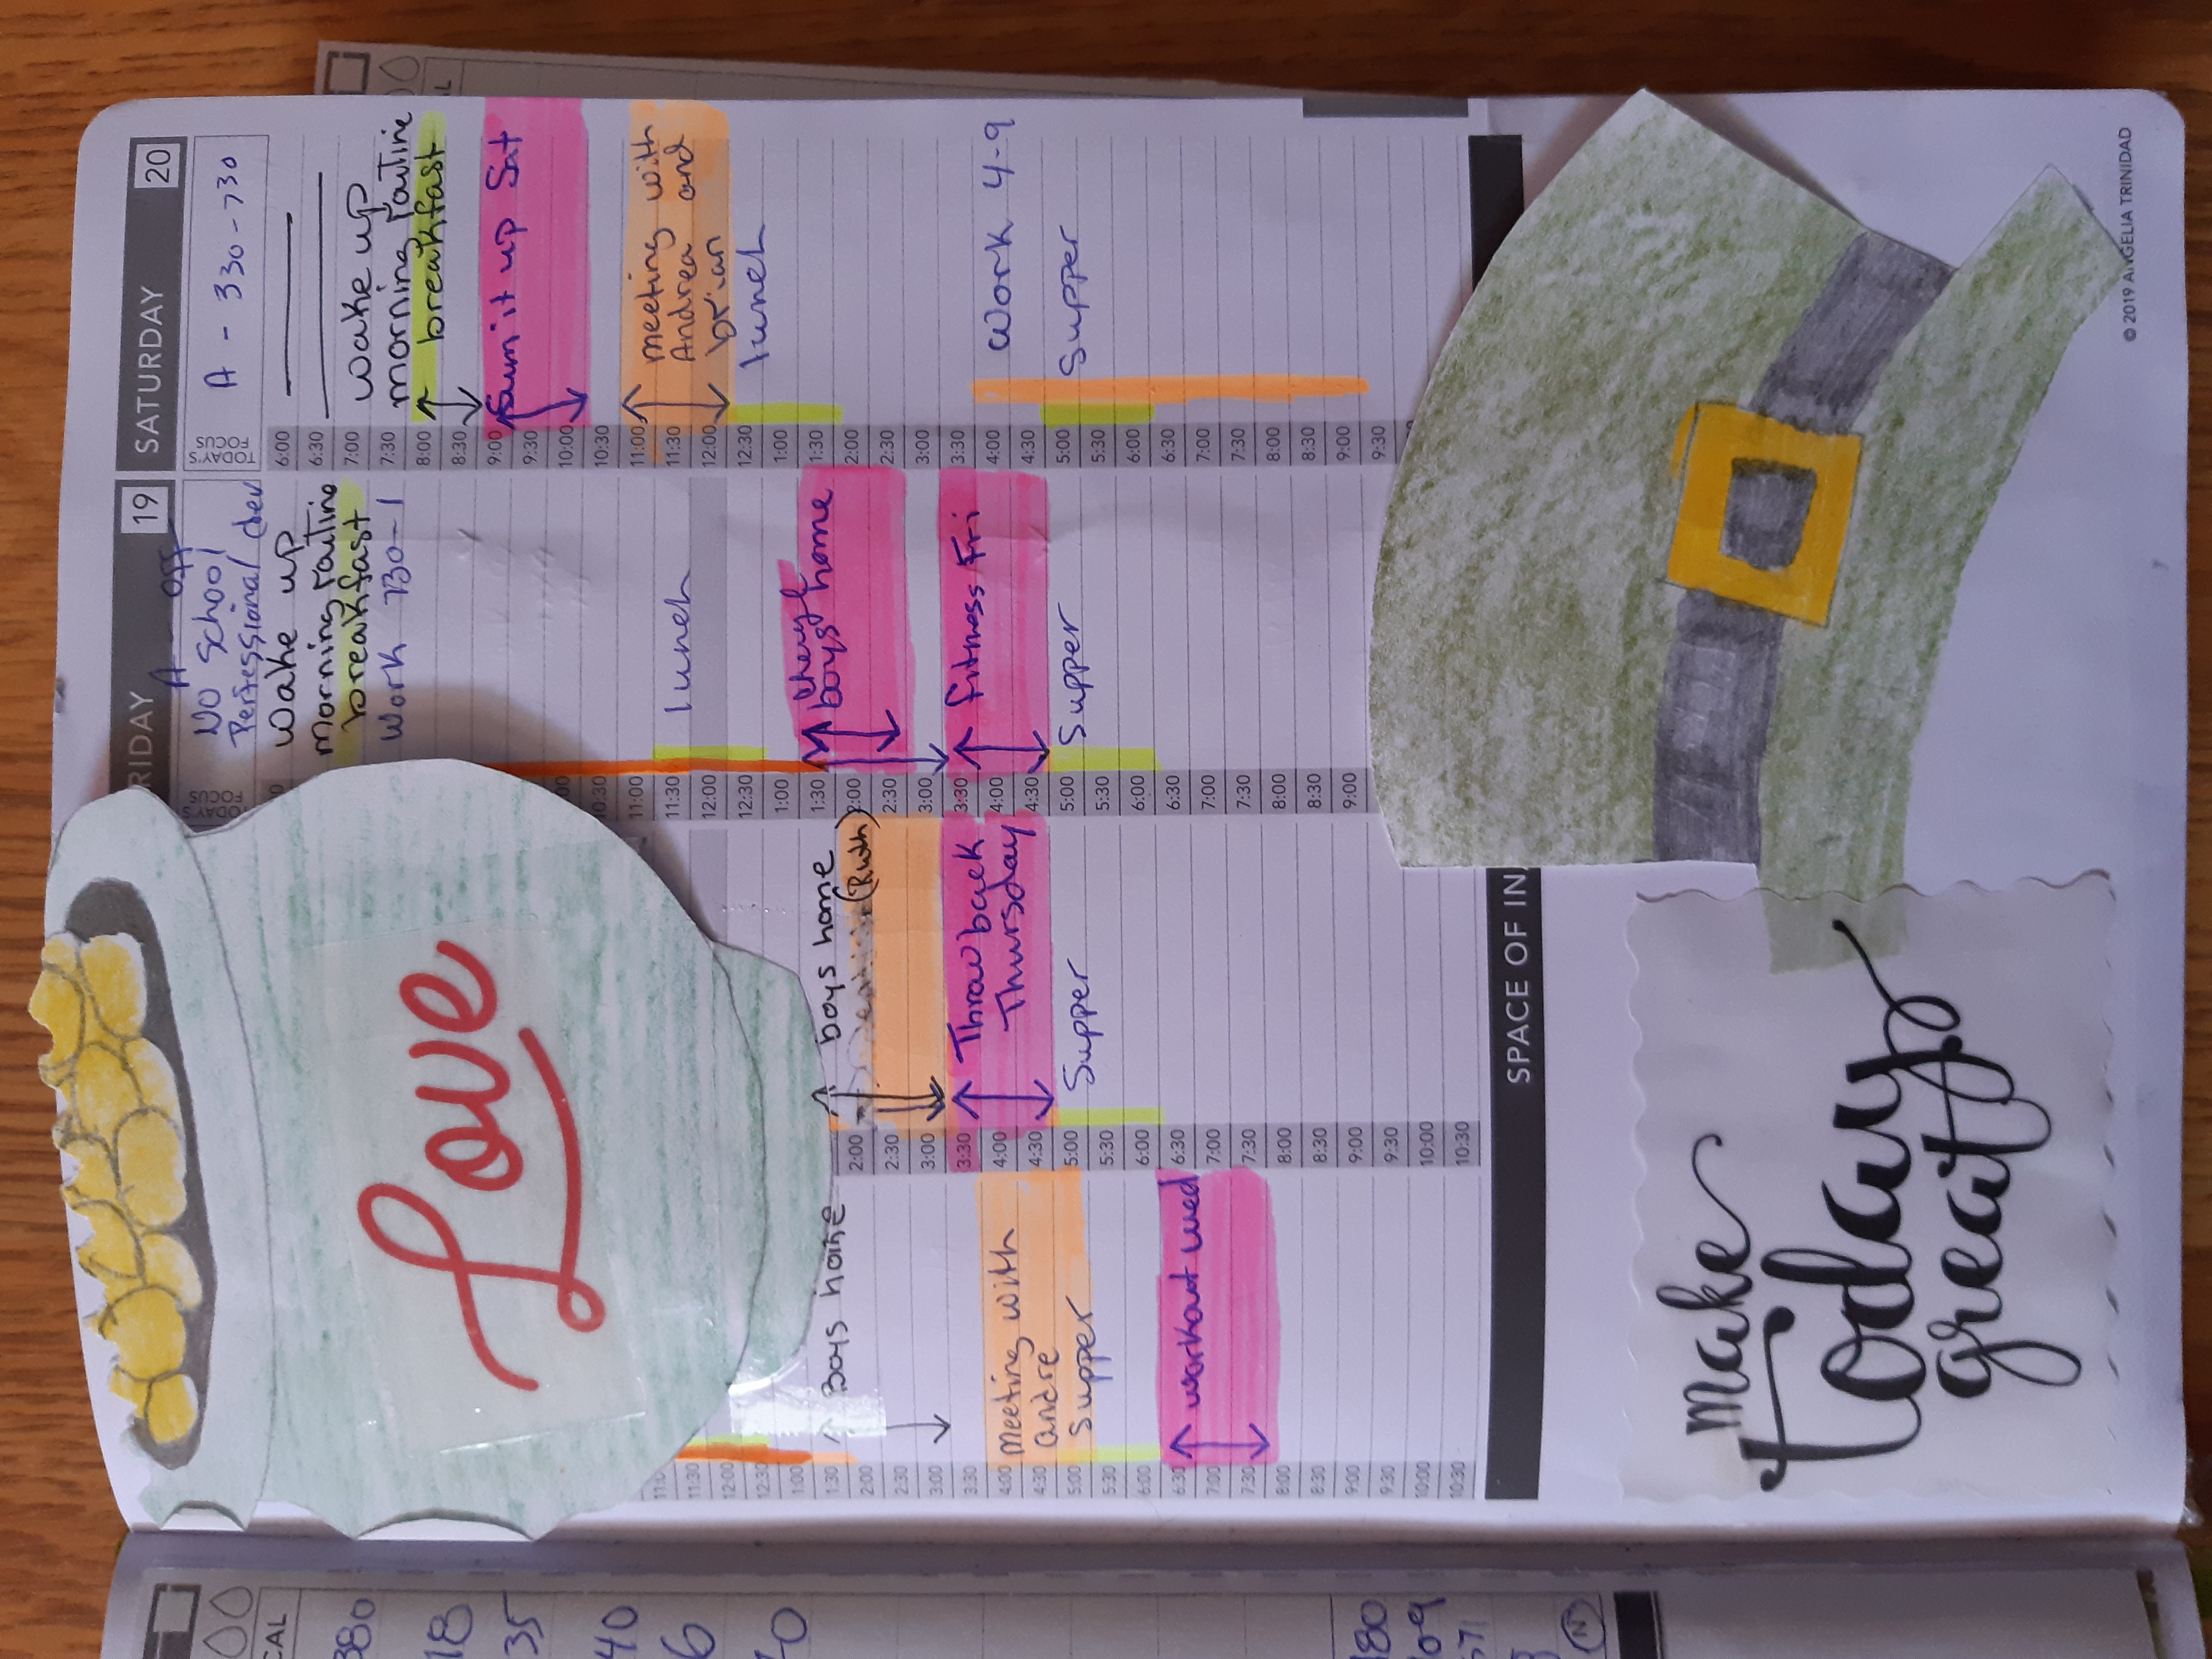 SATURDAY 20
TODAY'S FOCUS
A - 330-730
6:00
6:30
7:00 wake up
7:30 morning routine
8:00 breakfast
8:30
9:00 Sum it up Sat
9:30
10:00
10:30
11:00 meeting with
11:30 Andrea and
12:00 brian
12:30 lunch
1:00
1:30
2:00
2:30
3:00
3:30
4:00 Work 4-9
4:30
5:00 Supper
5:30
6:00
6:30
7:00
7:30
8:00
8:30
9:00
9:30
RIDAY 19
A - off
TODAY'S FOCUS
NO School
Wake up
Morning routine
breakfast
Work 730-1
10:30
11:00
11:30 lunch
12:00
12:30
1:00
1:30 boys home
2:00
2:30
3:00
3:30 Fitness Fri
4:00
4:30
5:00 Supper
5:30
6:00
6:30
7:00
7:30
8:00
8:30
9:00
boys home
2:00 (Ruth)
2:30
3:00
3:30 Throw back
4:00 Thursday
4:30
5:00 Supper
5:30
6:00
6:30
7:00
7:30
8:00
8:30
9:00
9:30
10:00
10:30
11:30
12:00
12:30
1:00
1:30 Boys home
2:00
2:30
3:00
3:30
4:00 Meeting with
4:30 andre
5:00 Supper
5:30
6:00
6:30 workout wed
7:00
7:30
8:00
8:30
9:00
9:30
10:00
10:30
Love
SPACE OF IN
Make
Today
great
© 2019 ANGELIA TRINIDAD
CAL
380
18
35
40
6
180
109
571
N